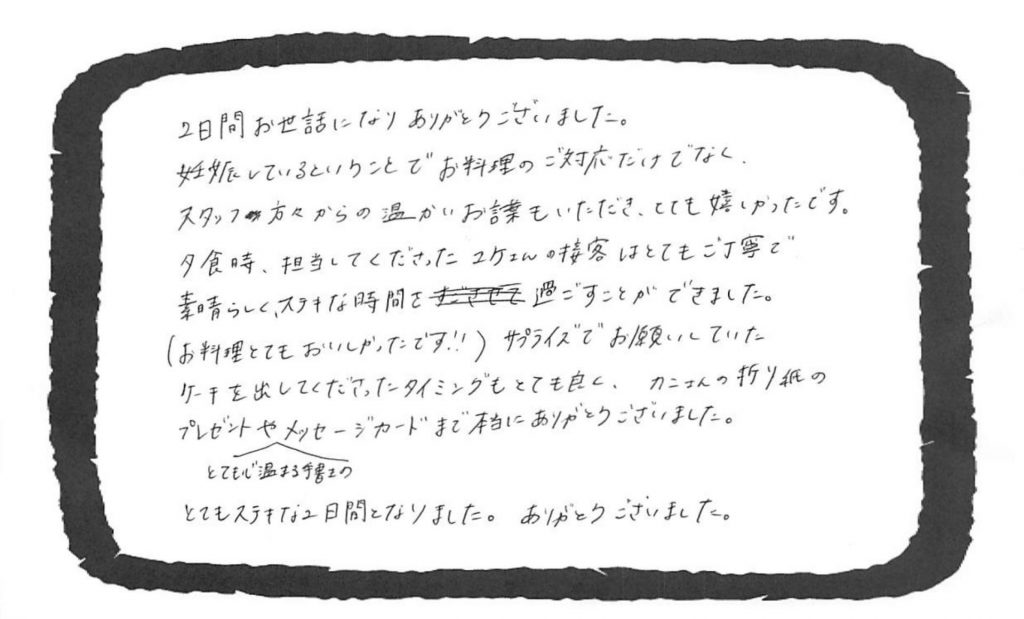 2日間お世話になりありがとうございました。
妊娠しているということでお料理のご対応だけでなく、
スタッフの方々からの温かいお言葉もいただき、とても嬉しかったです。
夕食時、担当してくださった さんの接客はとてもご丁寧で
素晴らしく、ステキな時間を過ごすことができました。
(お料理とてもおいしかったです!!) サプライズでお願いしていた
ケーキを出してくださったタイミングもとても良く、カニさんの折り紙の
プレゼントやメッセージカードまで本当にありがとうございました。
とても心温まる手書きの
とてもステキな2日間となりました。ありがとうございました。